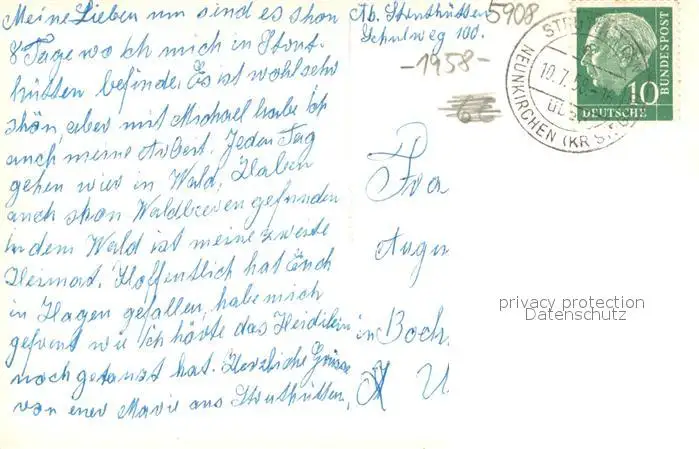 Meine Lieben nun sind es schon
8 Tage wo Ich mich in Strut-
hütten befinde. Es ist wohl sehr
schön, aber mit Michael habe Ich
auch meine Arbeit. Jeden Tag
gehen wier in Wald, Haben
auch schon Waldbeeren gefunden
in dem Wald ist meine zweite
Heimat. Hoffentlich hat Euch
in Hagen gefallen, habe mich
gefreut wie Ich hörte das Heidilein
noch getanzt hat. Herzliche Grüsse
von euer Marie aus Struthütten,
Ab. Struthütten
Schulweg 100.
5908
-1958-
66
NEUNKIRCHEN (KR
10.7.58
10
DEUTSCHE
BUNDESPOST
Fra
Augu
in Boch
U
privacy protection
Datenschutz